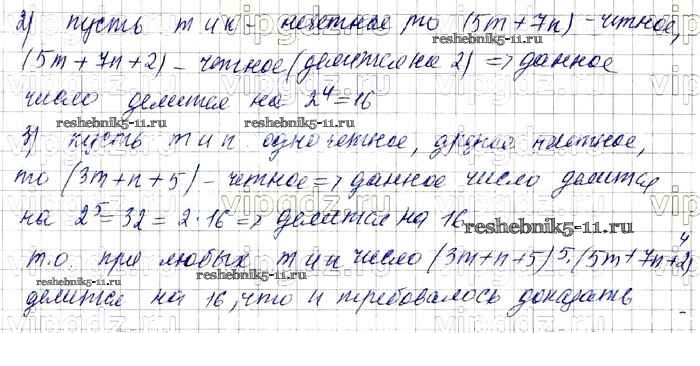 2) пусть m и n - нечетное то (5m + 7n) - четное,
reshebnik5-11.ru
(5m + 7n + 2) - четное (делится на 2) => данное
число делится на 2⁴ = 16
reshebnik5-11.ru reshebnik5-11.ru
3) пусть m и n одно четное, другое нечетное,
то (3m + n + 5) - четное => данное число делится
на 2⁵ = 32 = 2 · 16 => делится на 16
reshebnik5-11.ru
т.о при любых m и n число (3m + n + 5)⁵ · (5m + 7n + 2)⁴
reshebnik5-11.ru
делится на 16, что и требовалось доказать